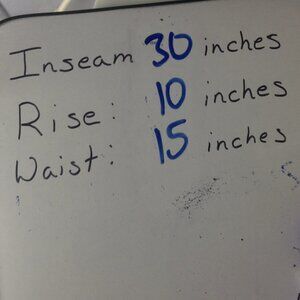 Inseam 30 inches
Rise: 10 inches
Waist: 15 inches